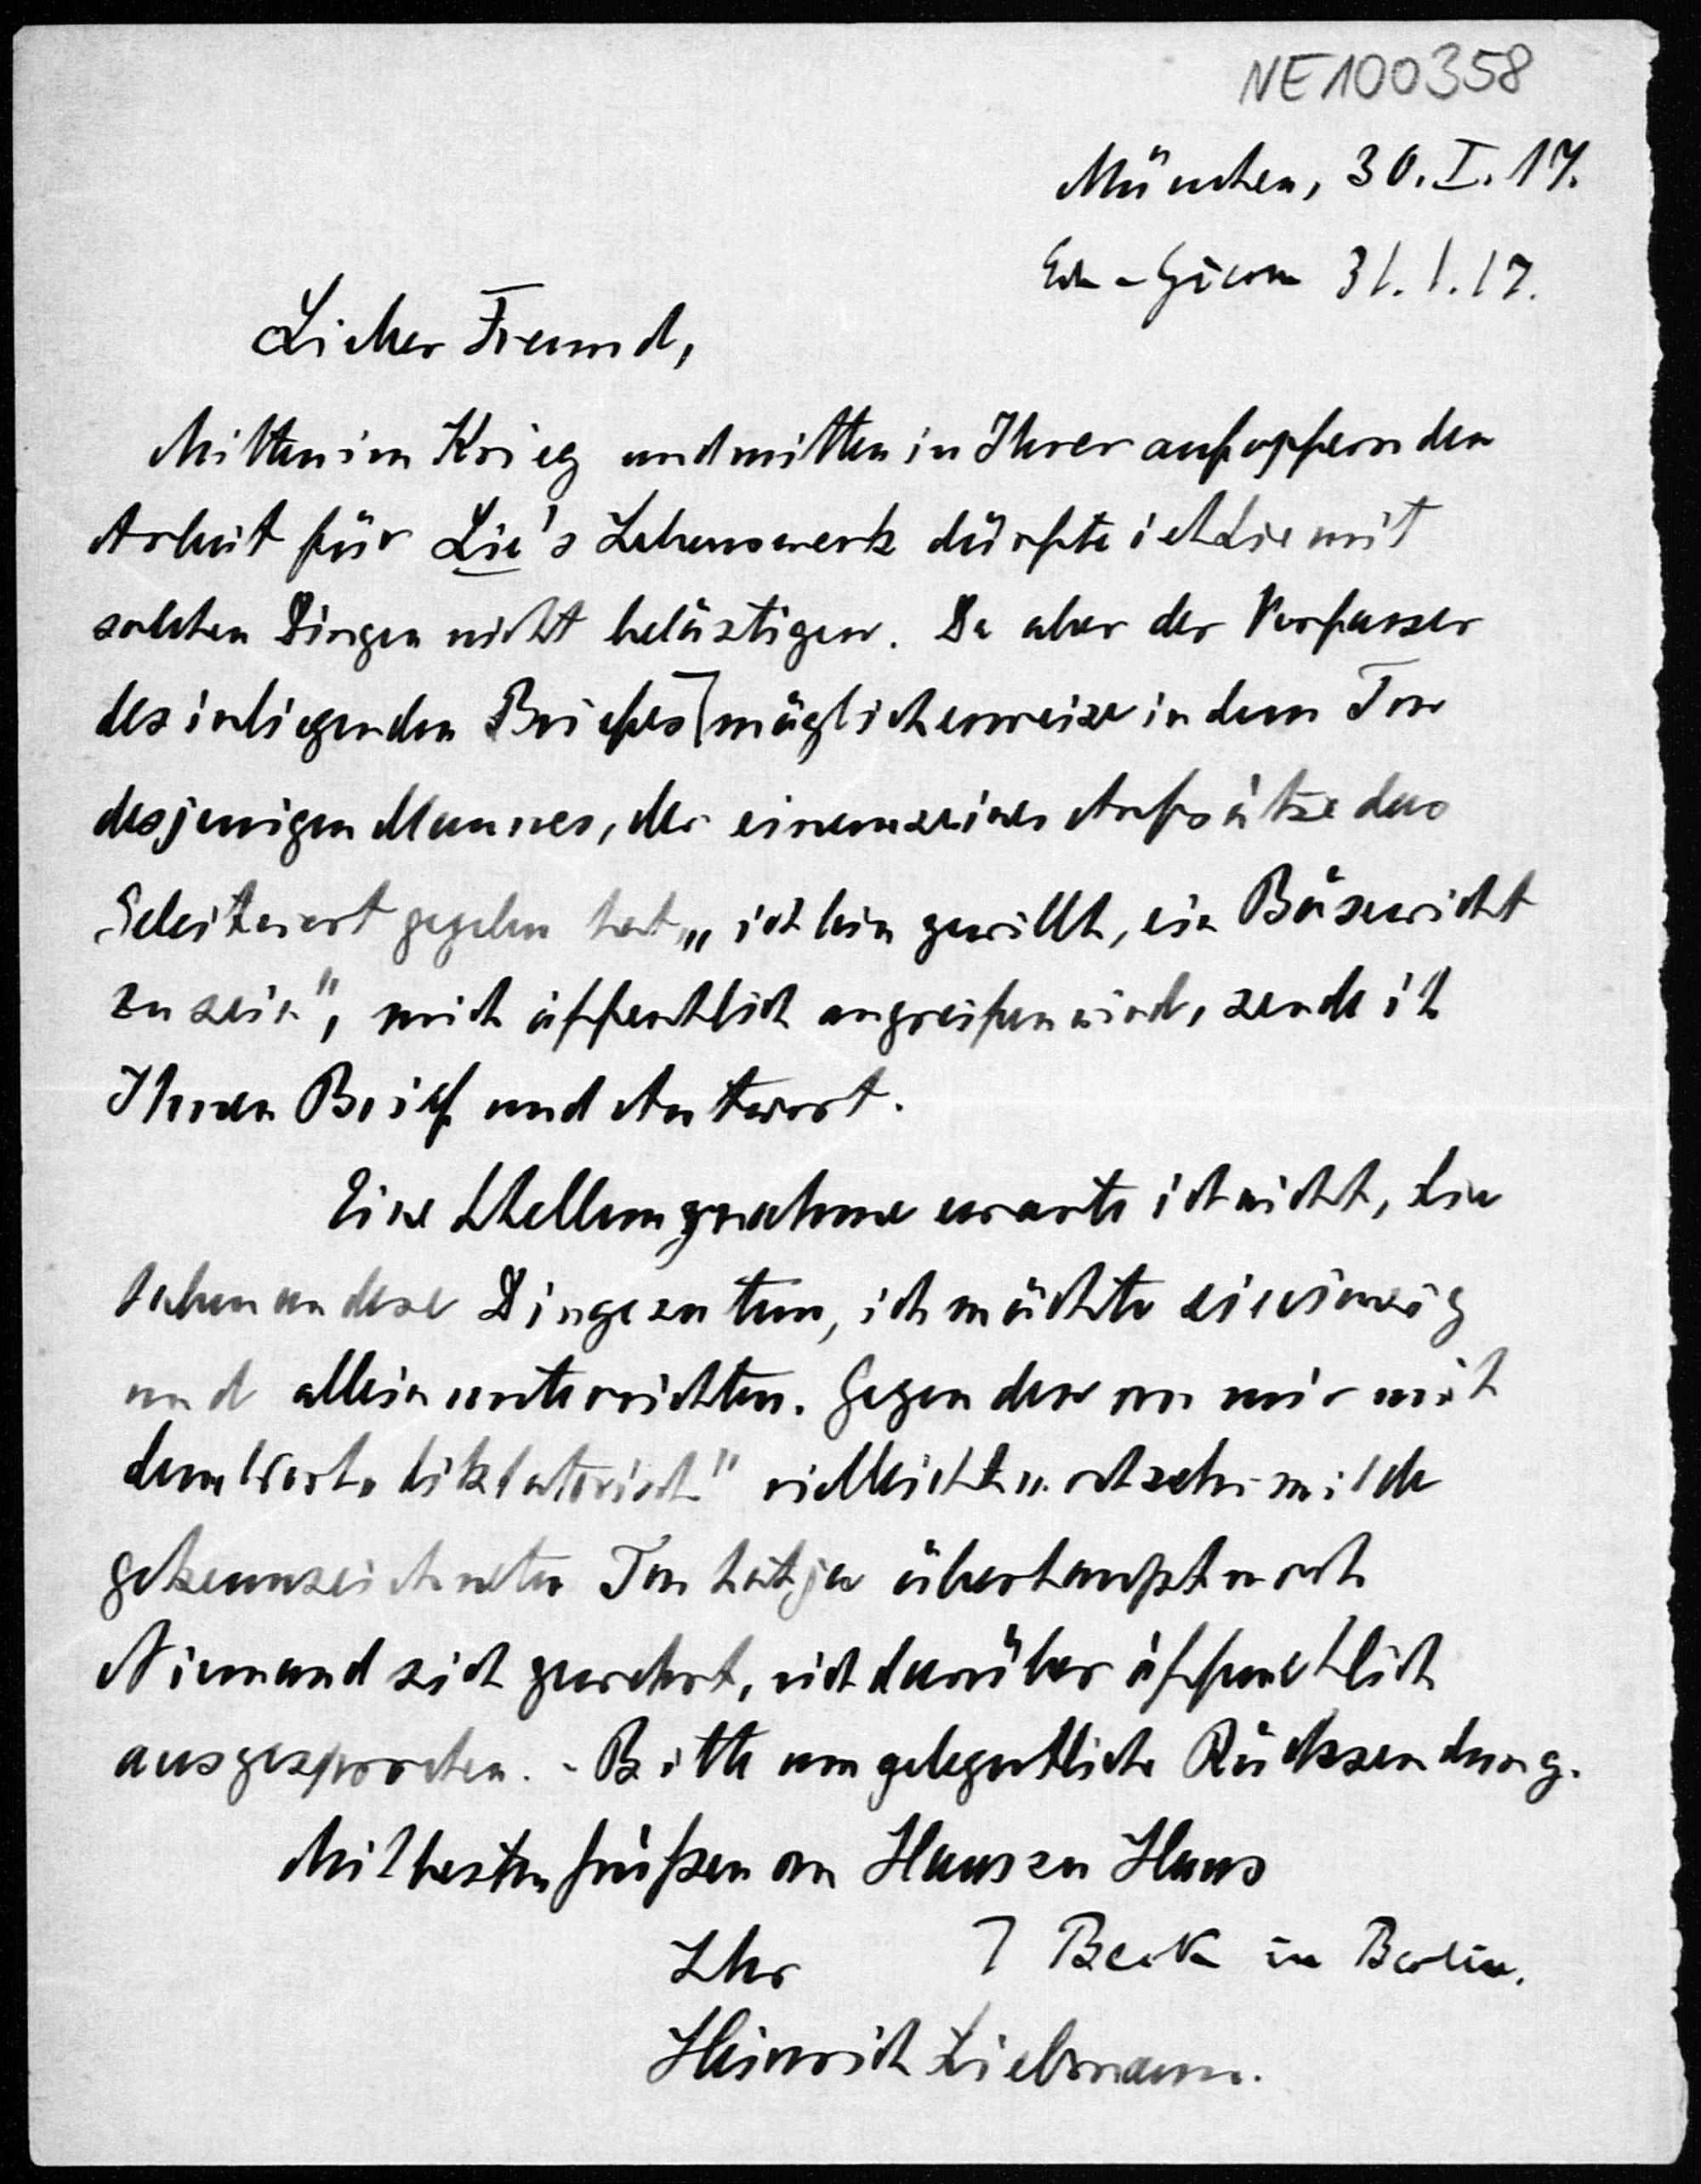 NE100358
München, 30. I. 17.
31. 1. 17.
Lieber Freund,
Mitten im Krieg und mitten in Ihrer aufopfernden
Arbeit für Lie's Lebenswerk dürfte ich Sie mit
solchen Dingen nicht belästigen. Da aber der Verfasser
des inliegenden Briefes ⌉ möglicherweise in dem Ton
desjenigen Mannes, der einem seiner Aufsätze das
Geleitwort gegeben hat „ich bin gewillt, ein Bösewicht
zu sein", mich öffentlich angreifen wird, sende ich
Ihnen Brief und Antwort.
Eine Stellungnahme erwarte ich nicht, Sie
haben andere Dinge zu tun, ich möchte Sie einzig
und allein unterrichten. Gegen den von mir mit
dem Wort „diktatorisch" vielleicht noch sehr milde
gekennzeichneten Ton hat ja überhaupt noch
Niemand sich gewehrt, sich darüber öffentlich
ausgesprochen. - Bitte um gelegentliche Rücksendung.
Mit besten Grüßen von Haus zu Haus
Ihr
⌉ Beck in Berlin.
Heinrich Liebmann.